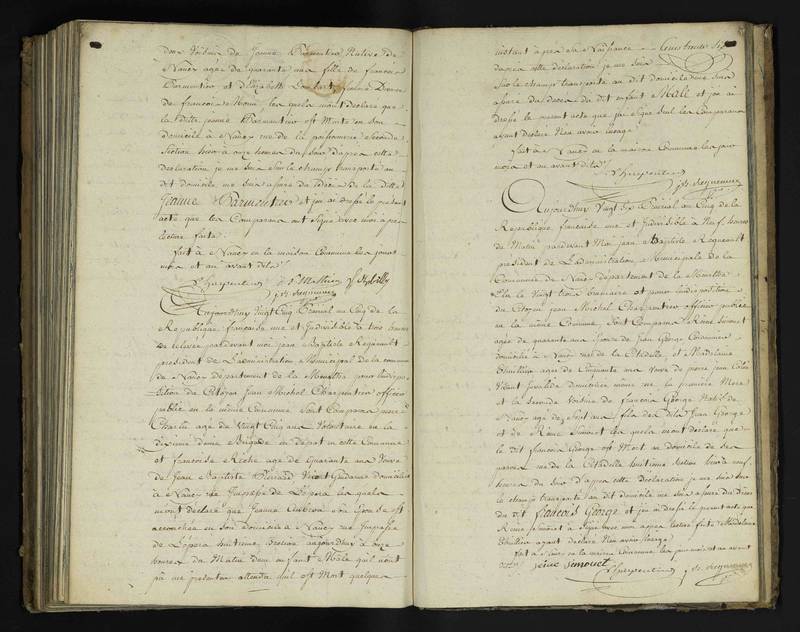 deux voisins de Jeanne Parmentier Native de
Nancy agée de quarante ans fille de francois
Parmentier et d'Elizabeth
de francois les quels m'ont declaré que
la ditte jeanne Parmentier est Morte en son
domicile à Nancy rue de la poissonnerie seconde
Section hier à onze heures du soir d'après cette
declaration je me suis sur le champ transporté au
dit domicile me suis assuré du décès de la ditte
Jeanne Parmentier et j'ai dressé le present
acte que les Comparans ont signé avec moi après
lecture faite
fait à Nancy en la maison Commune les jour
mois et an avant dits
Charpentier
Aujourdhuy vingt Cinq Prairial an Cinq de la
Republique française une et Indivisible à trois heures
de relevée pardevant moi jean Baptiste Regneault
president de L'administration Municipal de la commune
de Nancy département de la Meurthe pour lindispo
sition du Citoyen jean Michel Charpentier officier
public en la même Commune Sont Comparus
Charlie agé de Vingt Cinq ans Volontaire en la
dixieme demie Brigade en depart en cette Commune
et françoise Riche agée de Quarante ans Veuve
de Jean Baptiste domiciliée
à Nancy rue Impasse de L'opera les quels
m'ont declaré que Jeanne son Epouse est
accouchée en son domicile à Nancy rue Impasse
de L'opera huitieme Section aujourdhuy à onze
heures du Matin d'un enfant Male qu'il n'ont
pû me presenter attendu quil est Mort quelques
instant après sa Naissance
d'après cette declaration je me suis
sur le champ transporté au dit domicile me suis
assuré du deces du dit enfant Male et j'ai
dressé le present acte que signé seul les Comparans
ayant declaré N'en avoir lusage
fait à Nancy en la maison Commune les jour
mois et an avant dits
Charpentier
Aujourdhuy Vingt Six Prairial an Cinq de la
Republique française une et Indivisible à Neuf heures
du Matin pardevant Moi jean Baptiste Regneault
president de L'administration Municipale de la
Commune de Nancy departement de la Meurthe
Elu le Vingt trois brumaire et pour lindisposition
du Citoyen jean Michel Charpentier officier public
en la même Commune Sont Comparus Reine Simonet
agée de quarante ans Epouse de Jean George Cordonnier
domicilié à Nancy rue de la Citadelle, et Madelaine
agée de Cinquante ans Veuve de pierre jean
Vivant Invalide Domiciliée même rue la premiere Mere
et la seconde Voisine de francois George Natif de
Nancy agé de sept ans fils du dit Jean George
et de Reine Simonet les quels m'ont declaré que
le dit françois George est Mort au domicile de ses
parens rue de la Citadelle huitieme Section hier à neuf
heures du Soir d'après cette Declaration je me suis sur
le champ transporté au dit domicile me suis assuré du Deces
du dit francois George et j'ai dressé le present acte que
Reine Simonet à signé avec moi après lecture faite Madelaine
ayant declaré N'en avoir lusage
fait à Nancy en la maison Commune les jour mois et an avant
dits Reine simonet
Charpentier